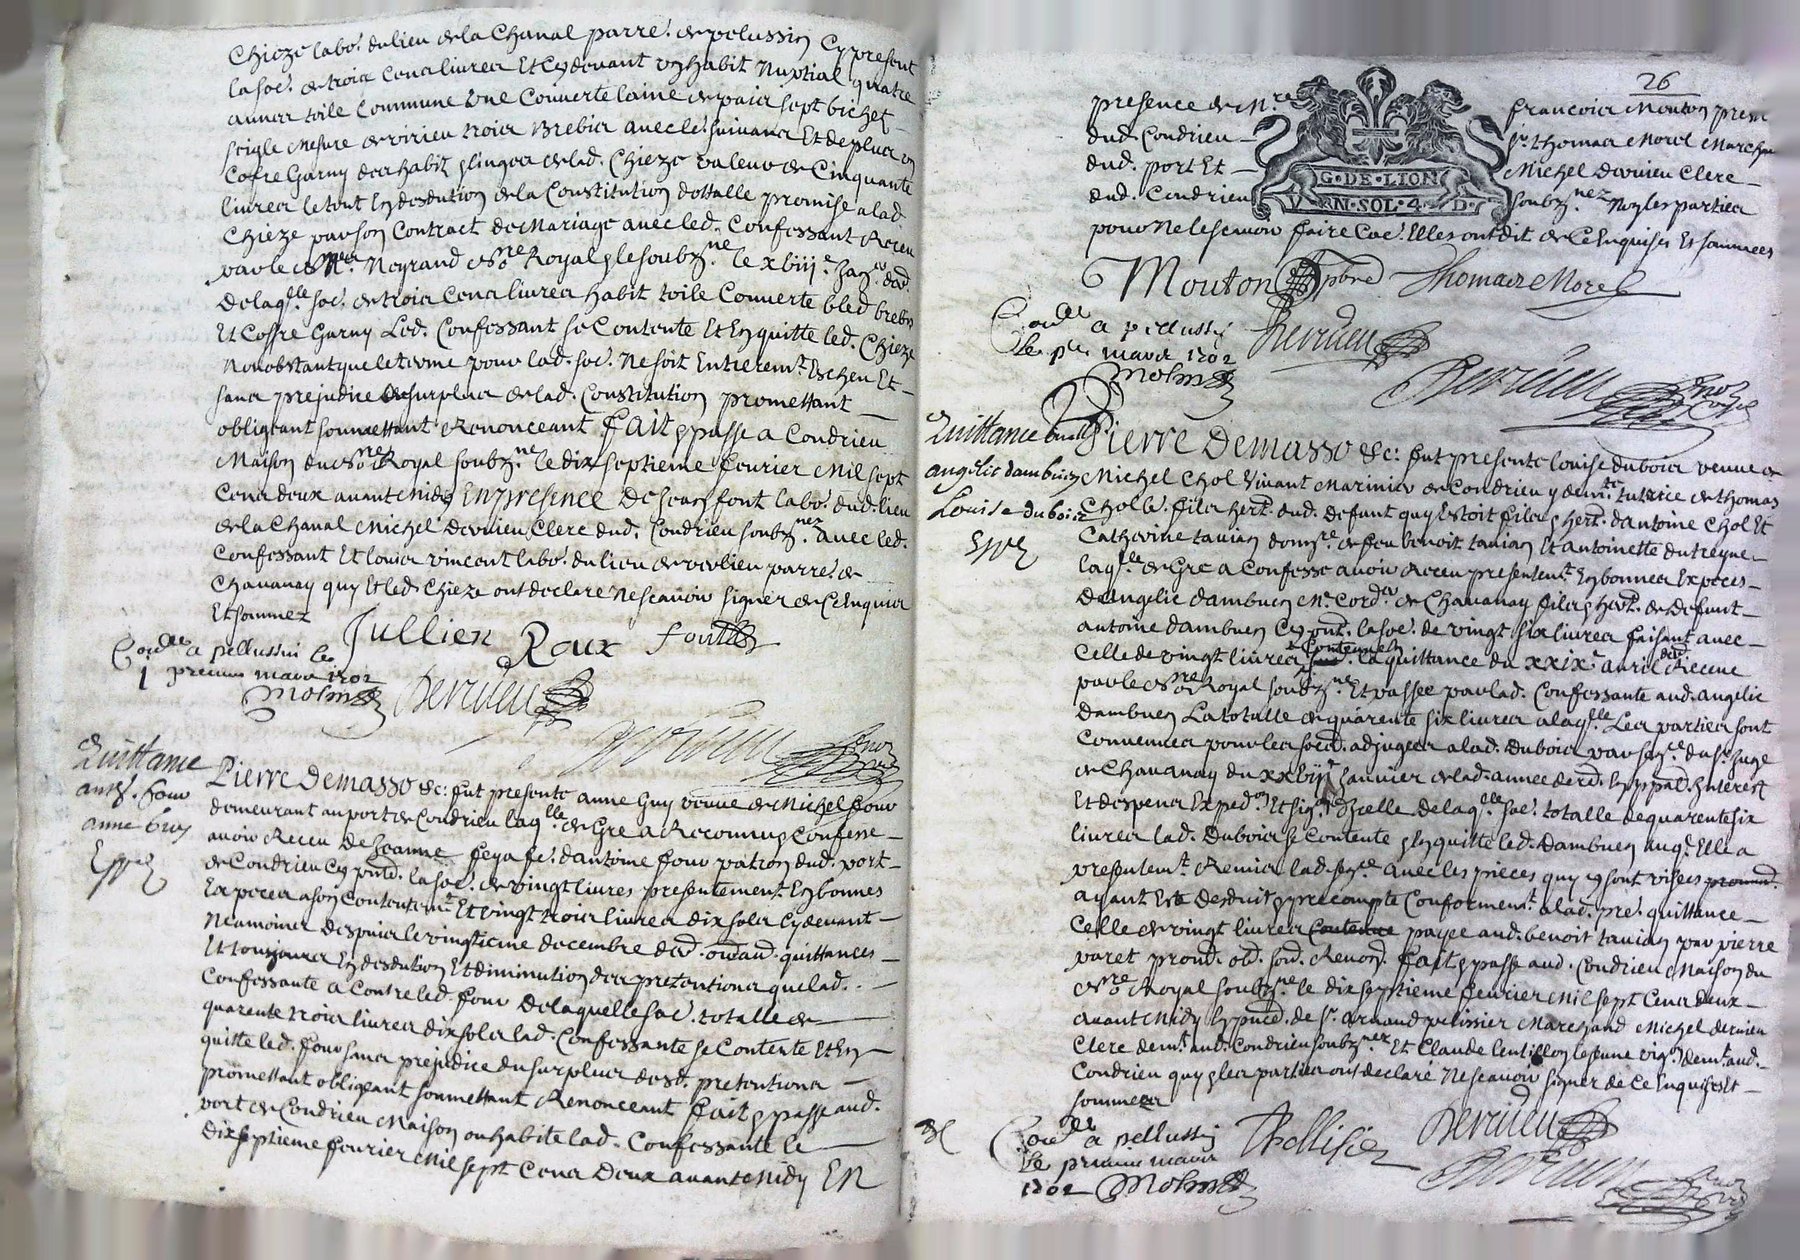 Chieze labo.r du lieu de la Chanal parre. de pelussin Cy present
la so.e de trois Cens livres Et Cy devant un habit Nuptial quatre
aunes toile Commune une Couverte laine de pais sept bichet
seigle Mesure de virieu trois Brebis avec le. suivans Et de plus un
Cofre Garny des habitz & linges de lad. Chieze valeur de Cinquante
livres le tout En desdution de la Constitution dottalle promise a lad
Chieze par son Contract de Mariage avec led. Confessant Receu
par le No.re Royal & le soubz.ne le xviij.e
De laq.lle so.e de trois Cens livres habit toile Couverte bled brebis
Et Coffre Garny Led. Confessant se Contente Et En quitte led. Chieze
Nonobstant que le terme pour lad. so.e Ne soit Entierem.t Escheu Et
sans prejudice du surplus de lad. Constitution promettant
obligeant soumettant Renonceant fait & passe a Condrieu
Maison du No.re Royal soubz.ne le dix septieme fevrier Mil sept
Cens deux avant Midy En presence De Jean font labo.r dud. lieu
de la Chanal Michel Dervieu Clerc dud. Condrieu soubz.nez avec led.
Confessant Et louis vincent labo.r du lieu de verlieu parre. de
Chavanay quy Et led. Chieze ont declare Ne scavoir signer de Ce Enquis
Et sommez
Jullien Roux font
Con.lle a pellussin le
premier mars 1702
Dervieu
Quittance
anne Guy
Pierre Demasso &c: fut presente anne Guy veuve de Michel four
demeurant au port de Condrieu laq.lle de Gre a Reconnu & Confesse
avoir Receu De Jeanne feya fe. d'antoine four patron dud. port
de Condrieu Cy pnte. la so.e de vingt livres presentement En bonnes
Especes a son Contentem.t Et vingt trois livres dix sols Cy devant
Neamoins despuis le vingtieme decembre der.
Et toujours En desdution Et diminution des pretentions que lad.
Confessante a Contre led. four De laquelle so.e totalle de
quarente trois livres dix sols lad. Confessante se Contente Et En
quitte led. four sans prejudice du surplus desd. pretentions
promettant obligeant soumettant Renonceant fait & passe aud.
port de Condrieu Maison ou habite lad. Confessante le
dix septieme fevrier Mil sept Cens Deux avant Midy En
26
presence de M.re francois Mouton
dud. Condrieu s.r thomas Morel Marchan
dud. port Et Michel Dervieu Clerc
dud. Condrieu soubz.nez Non les parties
G·DE·LION
RN·SOL·4·D·
pour Ne le scavoir faire Elles ont dit de Ce Enquises Et sommees
Mouton Thomas Morel
Con.lle a pellussin
le p.er mars 1702
Dervieu
Quittance
angelic dambuen
Louise dubois
Pierre Demasso &c: fut presente louise dubois veuve de
Michel Chol vivant Marinier de Condrieu tutrice de thomas
Cholle. fils & hert. dud. defunt quy Estoit fils & hert. d'antoine Chol Et
Catherine tavian de feu benoit tavian Et antoinette
laq.lle de Gre a Confesse avoir Receu presentem.t En bonnes Especes
D'angelic dambuen M.e Cord.r de Chavanay fils & hert. de defunt
antoine dambuen Cy pnt. la so.e de vingt six livres faisant avec
Celle de vingt livres Contenue la quittance du xxix.e avril Receue
par le No.re Royal soubz.ne Et passee par lad. Confessante aud. angelic
dambuen La totalle de quarente six livres a laq.lle Les parties sont
Convenues pour les adjugee a lad. Dubois par du s.r Juge
de Chavanay du janvier de lad. annee Interest
Et despens De laq.lle so.e totalle de quarente six
livres lad. Dubois se Contente & En quitte led. Dambuen Elle a
presentem.t Remis lad. Avec les pieces quy y sont visees
ayant Este Desduit & precompte Conformem.t a lad. quittance
Celle de vingt livres payee aud. benoit tavian par pierre
varet fait & passe aud. Condrieu Maison du
No.re Royal soubz.ne le dix septieme fevrier Mil sept Cens deux
avant Midy de s.r arnaud pelissier Marchand Michel dervieu
Clerc dem.t aud. Condrieu soubz.nez Et Claude lentillon le Jeune vig.n dem.t aud.
Condrieu quy & les parties ont declaré Ne scavoir signer de Ce Enquises Et
sommees
Con.lle a pellussin
le premier mars
1702
Pellissier
Dervieu